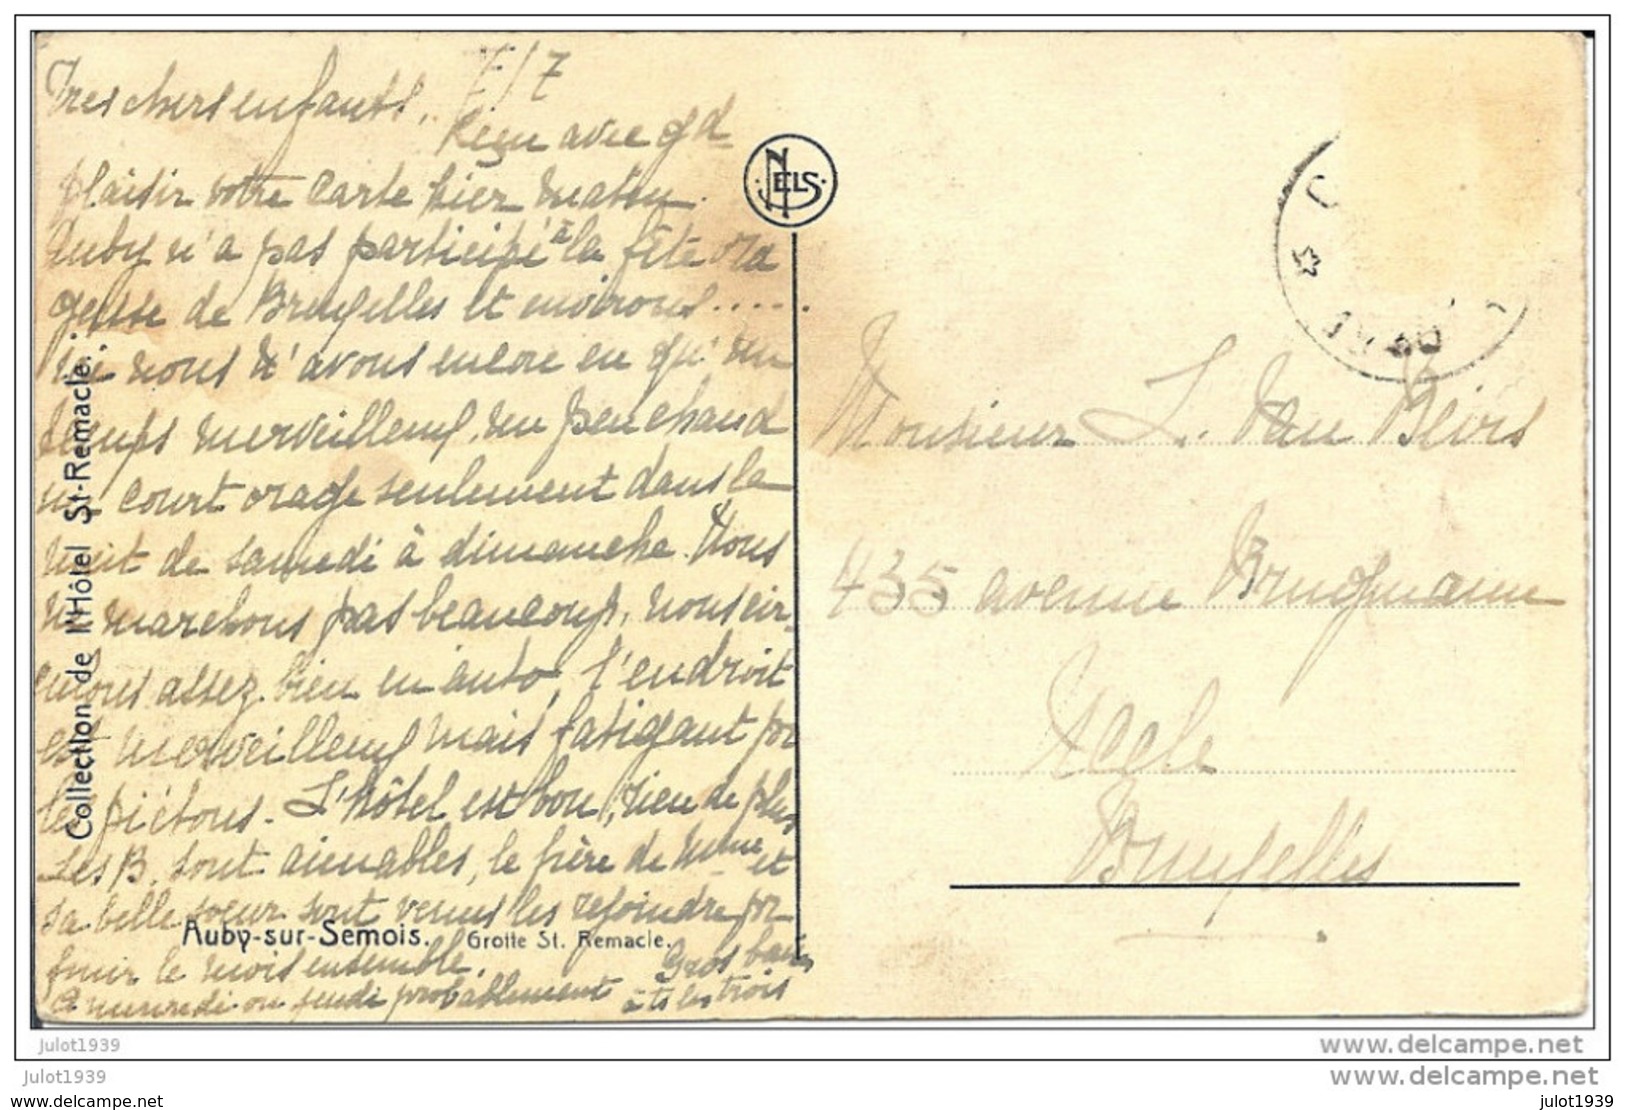 Tres chers enfants, 7/7
Reçu avec gd
plaisir votre carte hier matin.
Auby n'a pas participé à la fête ora
geuse de Bruxelles et environs.....
ici nous n'avons encore eu qu'un
temps merveilleux, un peu chaud
un court orage seulement dans la
nuit de samedi à dimanche. Nous
ne marchons pas beaucoup, nous cir-
culons assez bien en auto, l'endroit
est merveilleux mais fatigant pr
les piétons - L'hôtel est bon, rien de plus
Les B. sont aimables, le frère de Mme et
sa belle soeur sont venus les rejoindre pr
finir le mois ensemble. Gros baisers
A mercredi ou jeudi probablement à ts les trois
Collection de l'Hôtel St-Remacle.
Auby-sur-Semois. Grotte St. Remacle.
NELS
Monsieur L. Van Blérs
435 avenue Brugmann
Uccle
Bruxelles
julot1939
julot1939
www.delcampe.net
www.delcampe.net
www.delcampe.net
julot1939